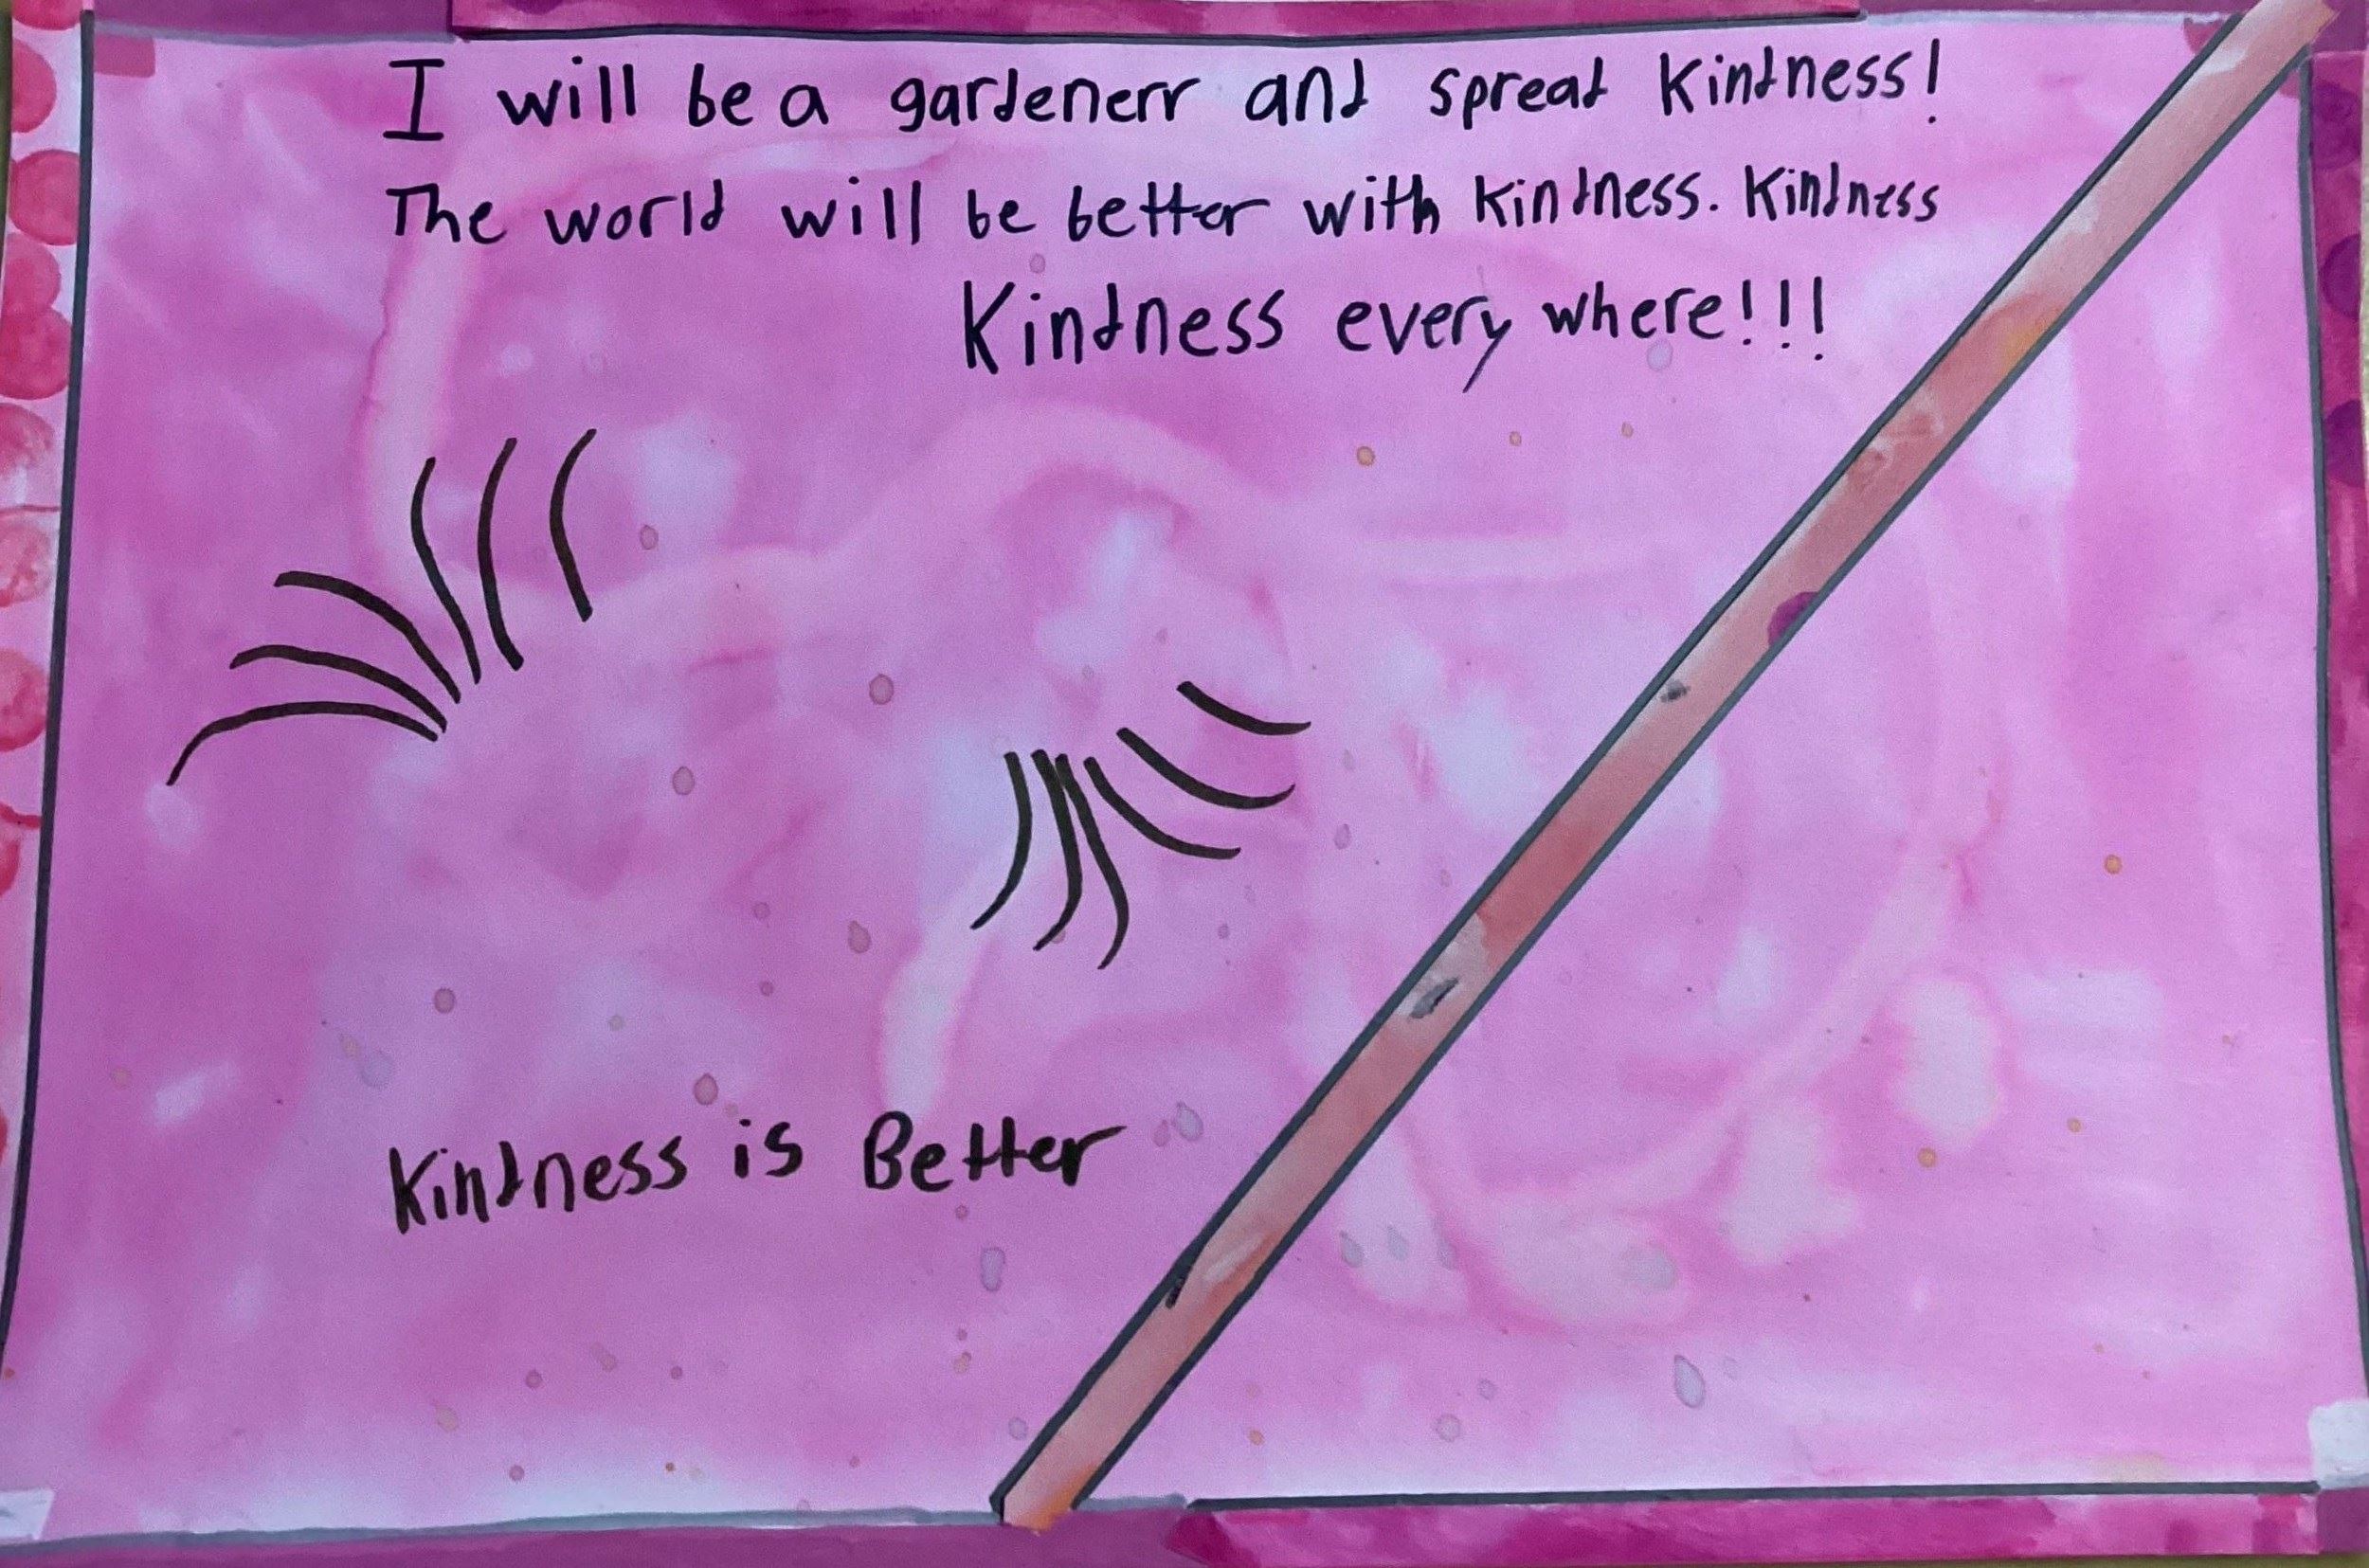 I will be a gardenerr and spread Kindness!
The world will be better with kindness. Kindness
Kindness every where!!!
Kindness is Better